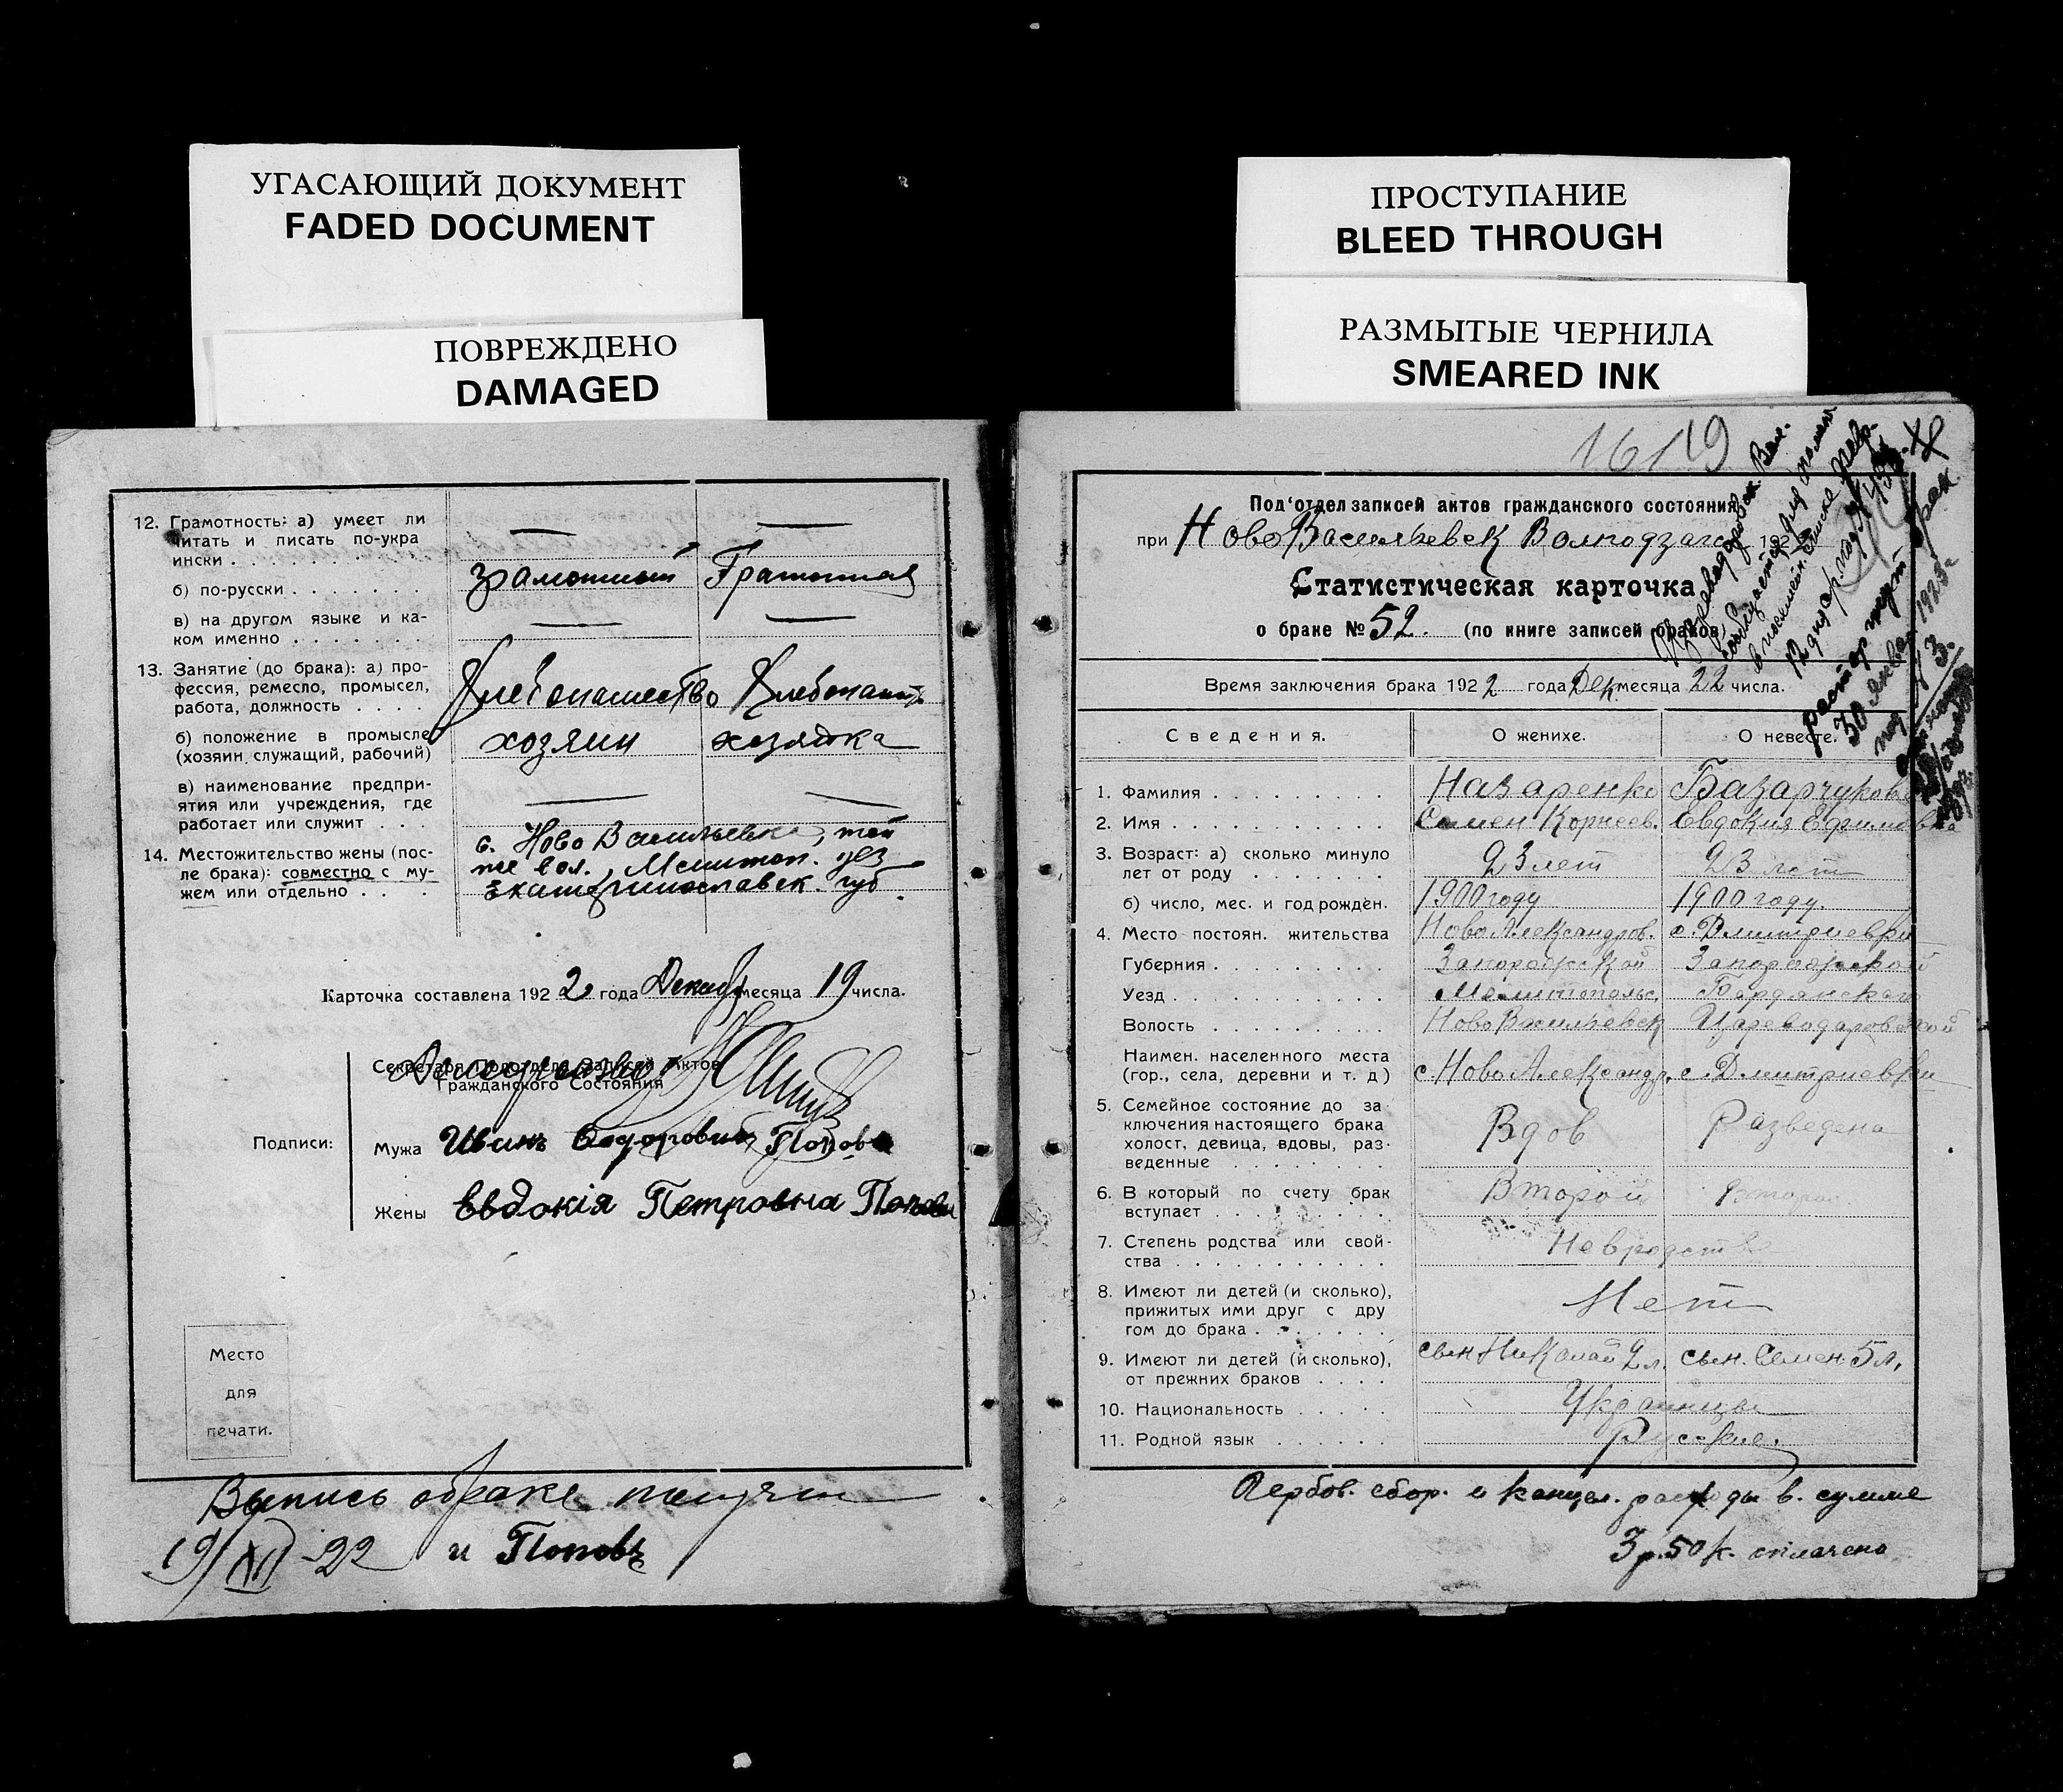 УГАСАЮЩИЙ ДОКУМЕНТ
FADED DOCUMENT
ПОВРЕЖДЕНО
DAMAGED
12. Грамотность: а) умеет ли
читать и писать по-укра
ински . . . . . . . — —
б) по-русски . . . . . . . грамотный Грамотная
в) на другом языке и ка-
ком именно . . . . . . . — —
13. Занятие (до брака): а) про-
фессия, ремесло, промысел,
работа, должность . . . . Хлебопашество Хлебопаш.
б) положение в промысле
(хозяин, служащий, рабочий) хозяин хозяйка
в) наименование предпри-
ятия или учреждения, где
работает или служит . . . — —
14. Местожительство жены (пос-
ле брака): совместно с му-
жем или отдельно . . .
с. Ново Васильевка, той
же вол., Мелитоп. уез
Екатеринославск. губ.
Карточка составлена 1922 года Декабр месяца 19 числа.
Секретарь Подотдела Записей Актов
Гражданского Состояния
Подписи:
Мужа Иванъ Попов
Жены Евдокія Петровна Попова
Место
для
печати.
Выпись о браке получил
19/XII-22 и Поповъ
ПРОСТУПАНИЕ
BLEED THROUGH
РАЗМЫТЫЕ ЧЕРНИЛА
SMEARED INK
16/19
Под'отдел записей актов гражданского состояния
при Ново Васильевск Волподзагс 192
Статистическая карточка
о браке № 52. (по книге записей браков)
Время заключения брака 1922 года Дек. месяца 22 числа.
Сведения. О женихе. О невесте.
1. Фамилия . . . . . . . . . Назаренко Базарчукова
2. Имя . . . . . . . . . . . Семен Корнеев. Евдокия Ефимовна
3. Возраст: а) сколько минуло
лет от роду . . . . . . . 23 лет 23 лет
б) число, мес. и год рожден. 1900 году 1900 году.
4. Место постоян. жительства Ново Александров. с. Дмитриевки
Губерния . . . . . . . . . Запорожской Запорожской
Уезд . . . . . . . . . . . Мелитопольс. Бердянского
Волость . . . . . . . . . Ново Васильевск Цареводаровской
Наимен. населенного места
(гор., села, деревни и т. д.) с. Ново Александр. с. Дмитриевки
5. Семейное состояние до за
ключения настоящего брака
холост, девица, вдовы, раз-
веденные . . . . . . . . Вдов Разведена
6. В который по счету брак
вступает . . . . . . . . Второй Второй
7. Степень родства или свой-
ства . . . . . . . . . . . Не в родстве
8. Имеют ли детей (и сколько),
прижитых ими друг с дру
гом до брака . . . . . . Нет
9. Имеют ли детей (и сколько),
от прежних браков . . . . сын Николай 2 л. сын. Семен 5 л.
10. Национальность . . . . . Украинцы
11. Родной язык . . . . . . Русские.
Гербов. сбор. и канцел. расходы в. сумме
3 р. 50 к. оплачено
брак
расторгнут
30 января 1925 г